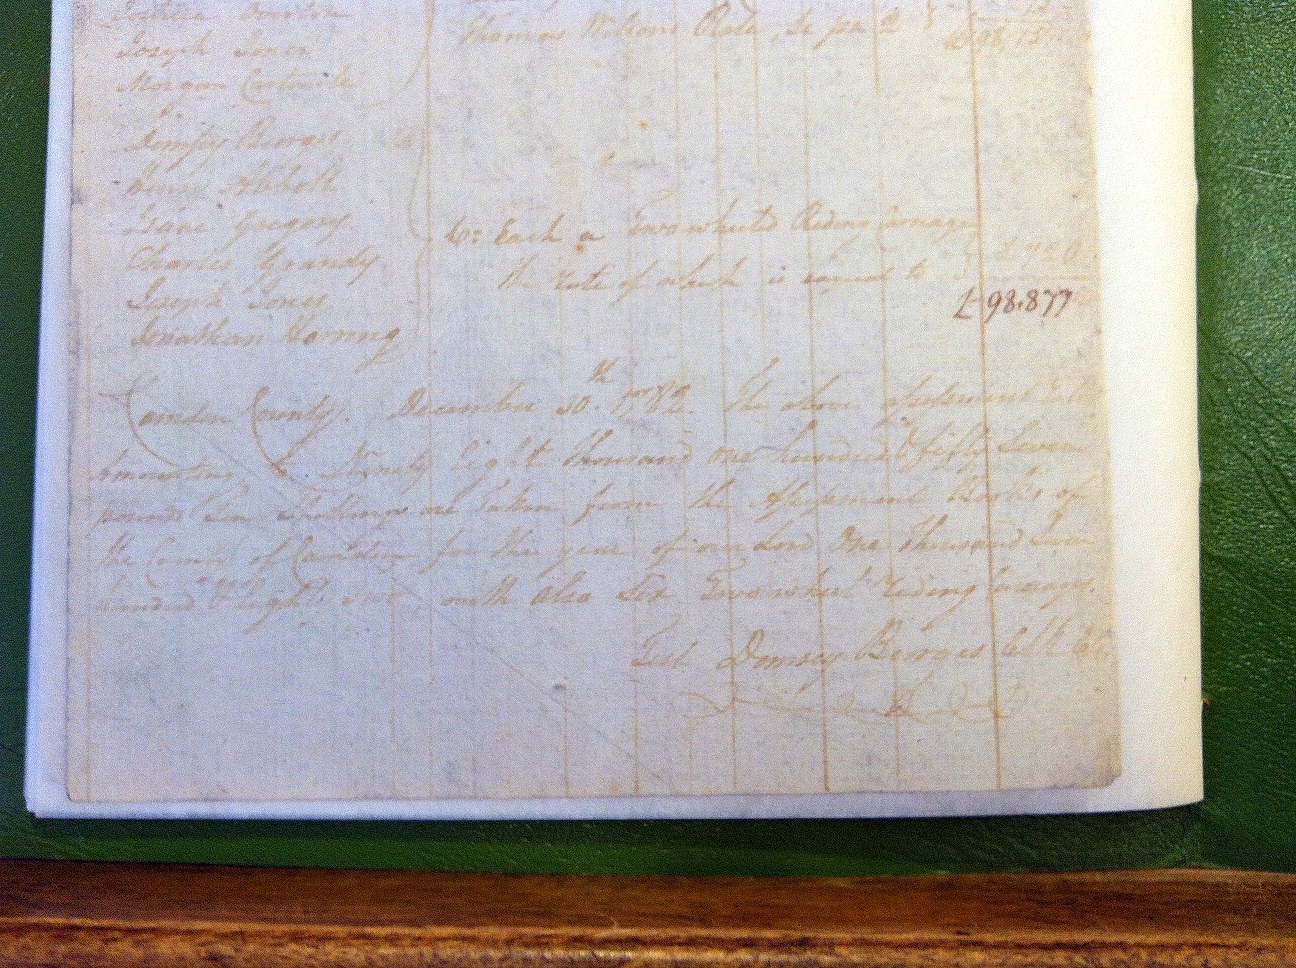 Joseph Jones
Thomas Williams Plate
£98,15
Morgan
Dempsy Burges
Henry Abbott
Isaac Gregory
Charles Grandy
Joseph Jones
Jonathan Herring
Each a Two wheeled Riding Carriage
the rate of which is equal to
£720
£98.877
Camden County. December 30th 1782. The above assessment
Amounting to Ninety Eight thousand one hundred & fifty Seven
pounds Ten Shillings as taken from the Assessment Books of
the County of Camden for the year of our Lord One Thousand Seven
hundred & Eighty two, with also Six Two wheel riding Carriages.
Test Demsey Burges Clk